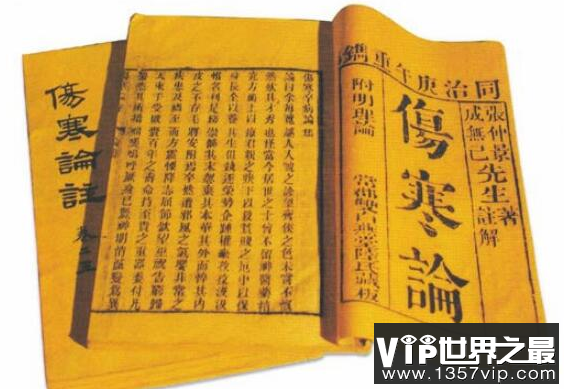 同治庚午重鐫
張仲景
成無己
先生
著
註解
傷寒論
附明理論
常郡雙白燕堂陸氏藏板
傷寒卒病論集
論曰余每覽越人入虢之診望齊侯之色未嘗不慨
然歎其才秀也怪當今居世之士曾不留神醫藥精
究方術上以療君親之疾下以救貧賤之厄中以保
身長全以養其生但競逐榮勢企踵權豪孜孜汲汲
惟名利是務崇飾其末忽棄其本華其外而悴其內
皮之不存毛將安附焉卒然遭邪風之氣嬰非常之
疾患及禍至而方震慄降志屈節欽望巫祝告窮歸
天束手受敗賫百年之壽命持至貴之重器委付凡
傷寒論註
VIP世界之最
www.1357vip.com